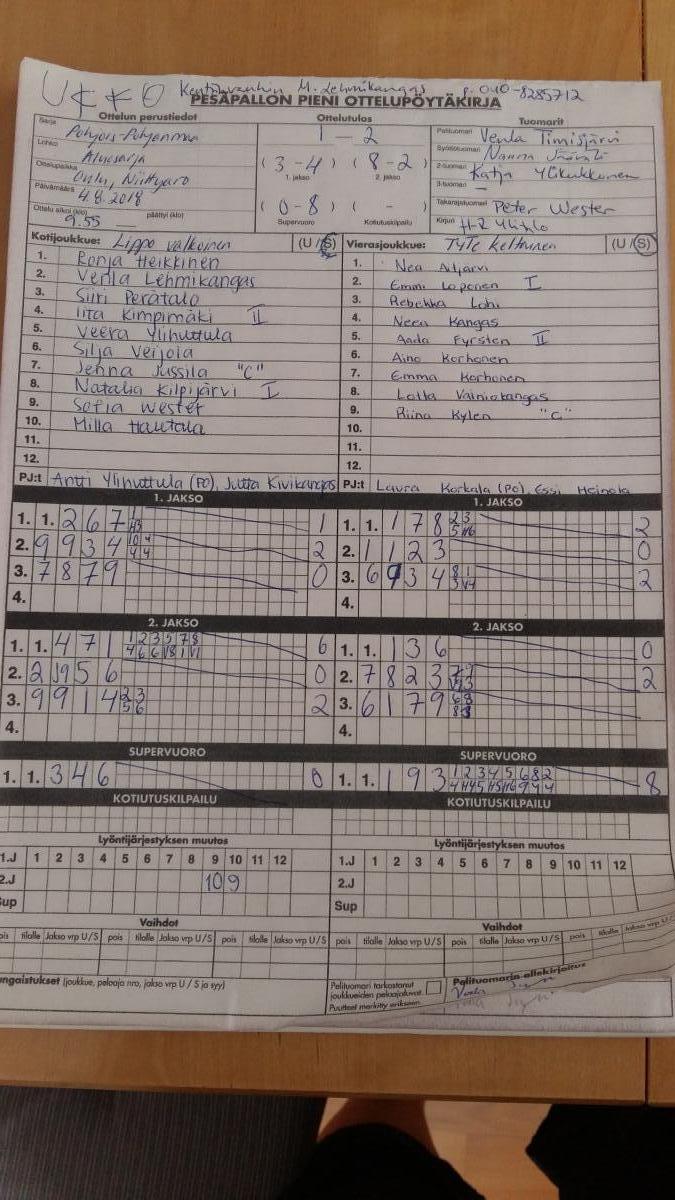 Kenttävanhin M. Lehmikangas p. 040-8285712
UKKO
PESÄPALLON PIENI OTTELUPÖYTÄKIRJA
Ottelun perustiedot
Sarja Pohjois-Pohjanmaa
Lohko Aluesarja
Ottelupaikka Oulu, Niittyaro
Päivämäärä 4.8.2018
Ottelu alkoi (klo) 9.55 päättyi (klo)
Ottelutulos
1 - 2
(3-4) (8-2)
1. jakso 2. jakso
(0-8) ( - )
Supervuoro Kotiutuskilpailu
Tuomarit
Pelituomari Venla Timisjärvi
Syöttötuomari Nanna
2-tuomari Katja Ylikukkonen
3-tuomari -
Takarajatuomari Peter Wester
Kirjuri
Kotijoukkue: Lippo valkoinen (U / S)
1. Ronja Heikkinen
2. Venla Lehmikangas
3. Siiri Perätalo
4. Iita Kimpimäki II
5. Veera Ylihuttula
6. Silja Veijola
7. Jenna Jussila "C"
8. Natalia Kilpijärvi I
9. Sofia Wester
10. Milla Hautala
11.
12.
PJ:t Antti Ylihuttula (PO), Jutta Kivikangas
Vierasjoukkue: TyTe keltainen (U / S)
1. Nea Aljärvi
2. Emmi Loponen I
3. Rebekka Lohi
4. Neea Kangas
5. Aada Fyrsten II
6. Aino Korhonen
7. Emma Korhonen
8. Lotta Vainiokangas
9. Riina Kylen "C"
10.
11.
12.
PJ:t Laura Korkala (PO), Essi Heinola
1. JAKSO
1. 1. 2 6 7 1
2. 9 9 3 4 2
3. 7 8 7 9 0
4.
1. JAKSO
1. 1. 1 7 8 2
2. 1 1 2 3 0
3. 6 9 3 4 2
4.
2. JAKSO
1. 1. 4 7 1 1 2 3 5 7 8 6
2. 2 9 5 6 0
3. 9 9 1 4 2 3 5 6 2
4.
2. JAKSO
1. 1. 1 3 6 0
2. 7 8 2 3 2
3. 6 1 7 9
4.
SUPERVUORO
1. 1. 3 4 6 0
SUPERVUORO
1. 1. 1 9 3 1 2 3 4 5 6 8 2 8
KOTIUTUSKILPAILU
KOTIUTUSKILPAILU
Lyöntijärjestyksen muutos
1.J 1 2 3 4 5 6 7 8 9 10 11 12
2.J 10 9
Sup
Lyöntijärjestyksen muutos
1.J 1 2 3 4 5 6 7 8 9 10 11 12
2.J
Sup
Vaihdot
pois tilalle Jakso vrp U/S pois tilalle Jakso vrp U/S pois tilalle Jakso vrp U/S
Vaihdot
pois tilalle Jakso vrp U/S pois tilalle Jakso vrp U/S pois tilalle Jakso vrp U/S
ngaistukset (joukkue, pelaaja nro, jakso vrp U / S ja syy)
Pelituomari tarkastanut joukkueiden pelaajaluvat
Puutteet merkitty erikseen
Pelituomarin allekirjoitus